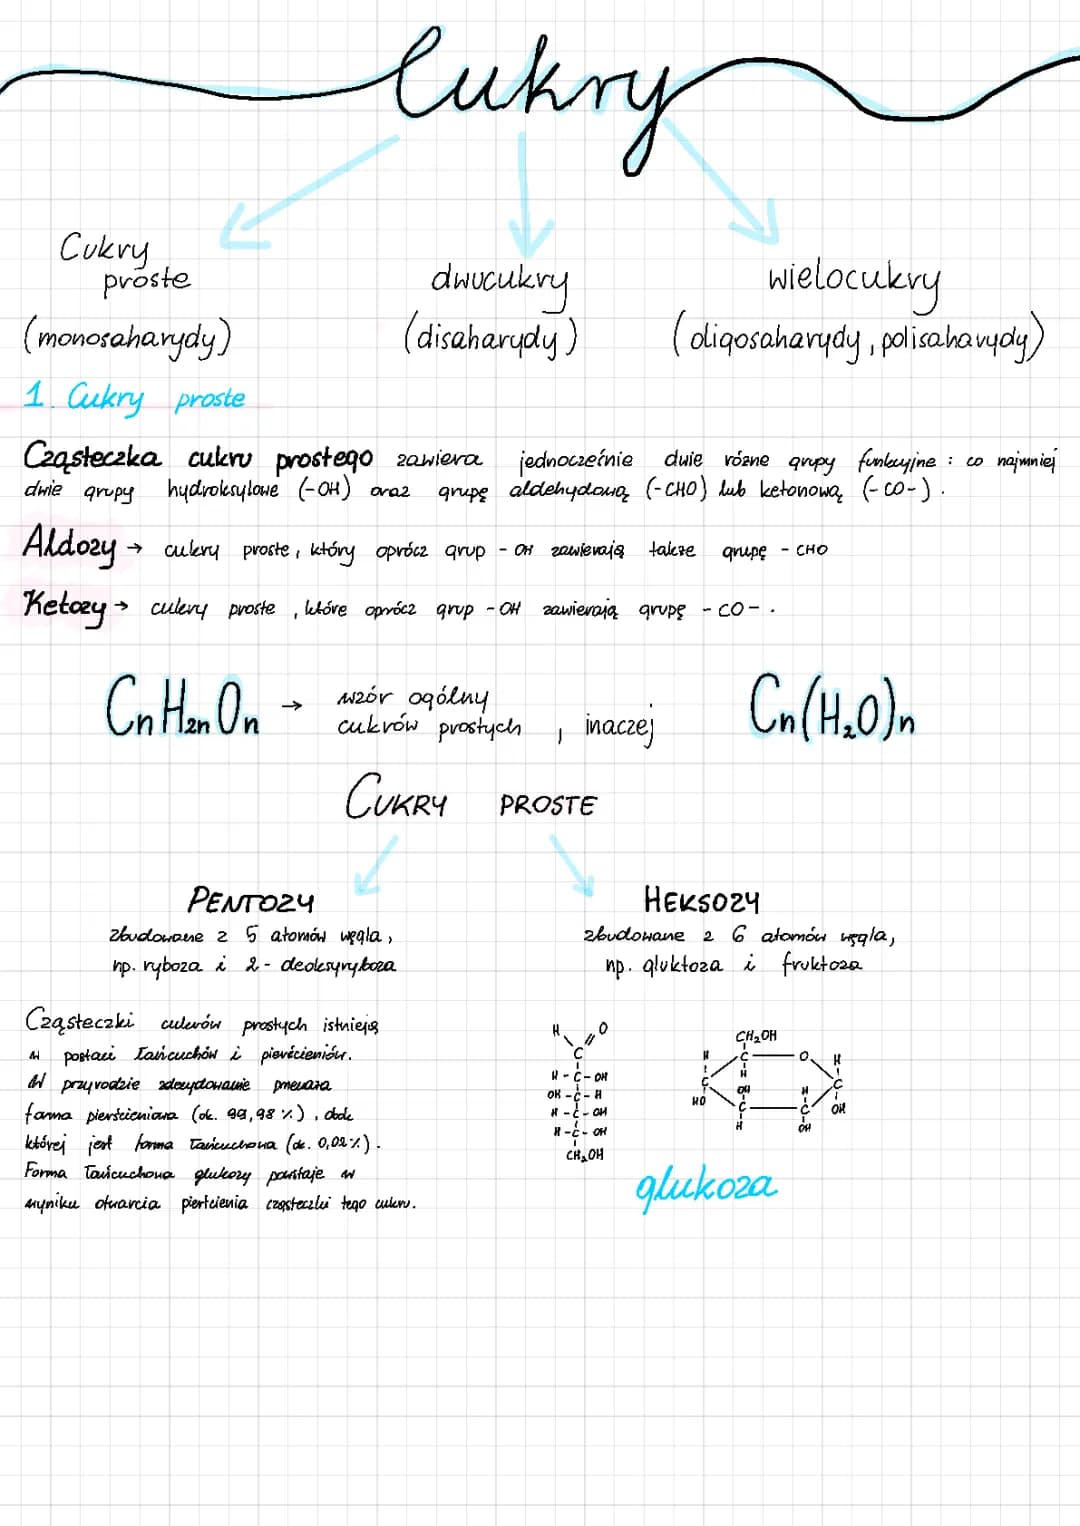 Cukry
Cukry
proste
(monosaharydy)
dwucukry
(disaharydy)
wielocukry
(oligosaharydy, polisaharydy)
1. Cukry proste
Cząsteczka cukru prostego zawiera jednocześnie dwie różne grupy funkcyjne : co najmniej
dwie grupy hydroksylowe (-OH) oraz grupę aldehydową (-CHO) lub ketonową (-CO-).
Aldozy → cukry proste, który oprócz grup - OH zawierają także grupę - CHO
Ketozy → cukry proste, które oprócz grup - OH zawierają grupę - CO - .
CnH2nOn → wzór ogólny
cukrów prostych , inaczej Cn(H2O)n
CUKRY PROSTE
PENTOZY
zbudowane z 5 atomów węgla,
np. ryboza i 2 - deoksyryboza
HEKSOZY
zbudowane z 6 atomów węgla,
np. gluktoza i fruktoza
Cząsteczki cukrów prostych istnieją
w postaci łańcuchów i pierścieniów.
W przyrodzie zdecydowanie
forma pierścieniowa (ok. 99,98 %), obok
której jest forma łańcuchowa (ok. 0,02%).
Forma łańcuchowa glukozy powstaje w
wyniku otwarcia pierścienia cząsteczki tego cukru.
H O
C
H - C - OH
OH - C - H
H - C - OH
H - C - OH
CH2OH
CH2OH
H C O H
C H C
HO OH H OH
C C
H OH
glukoza